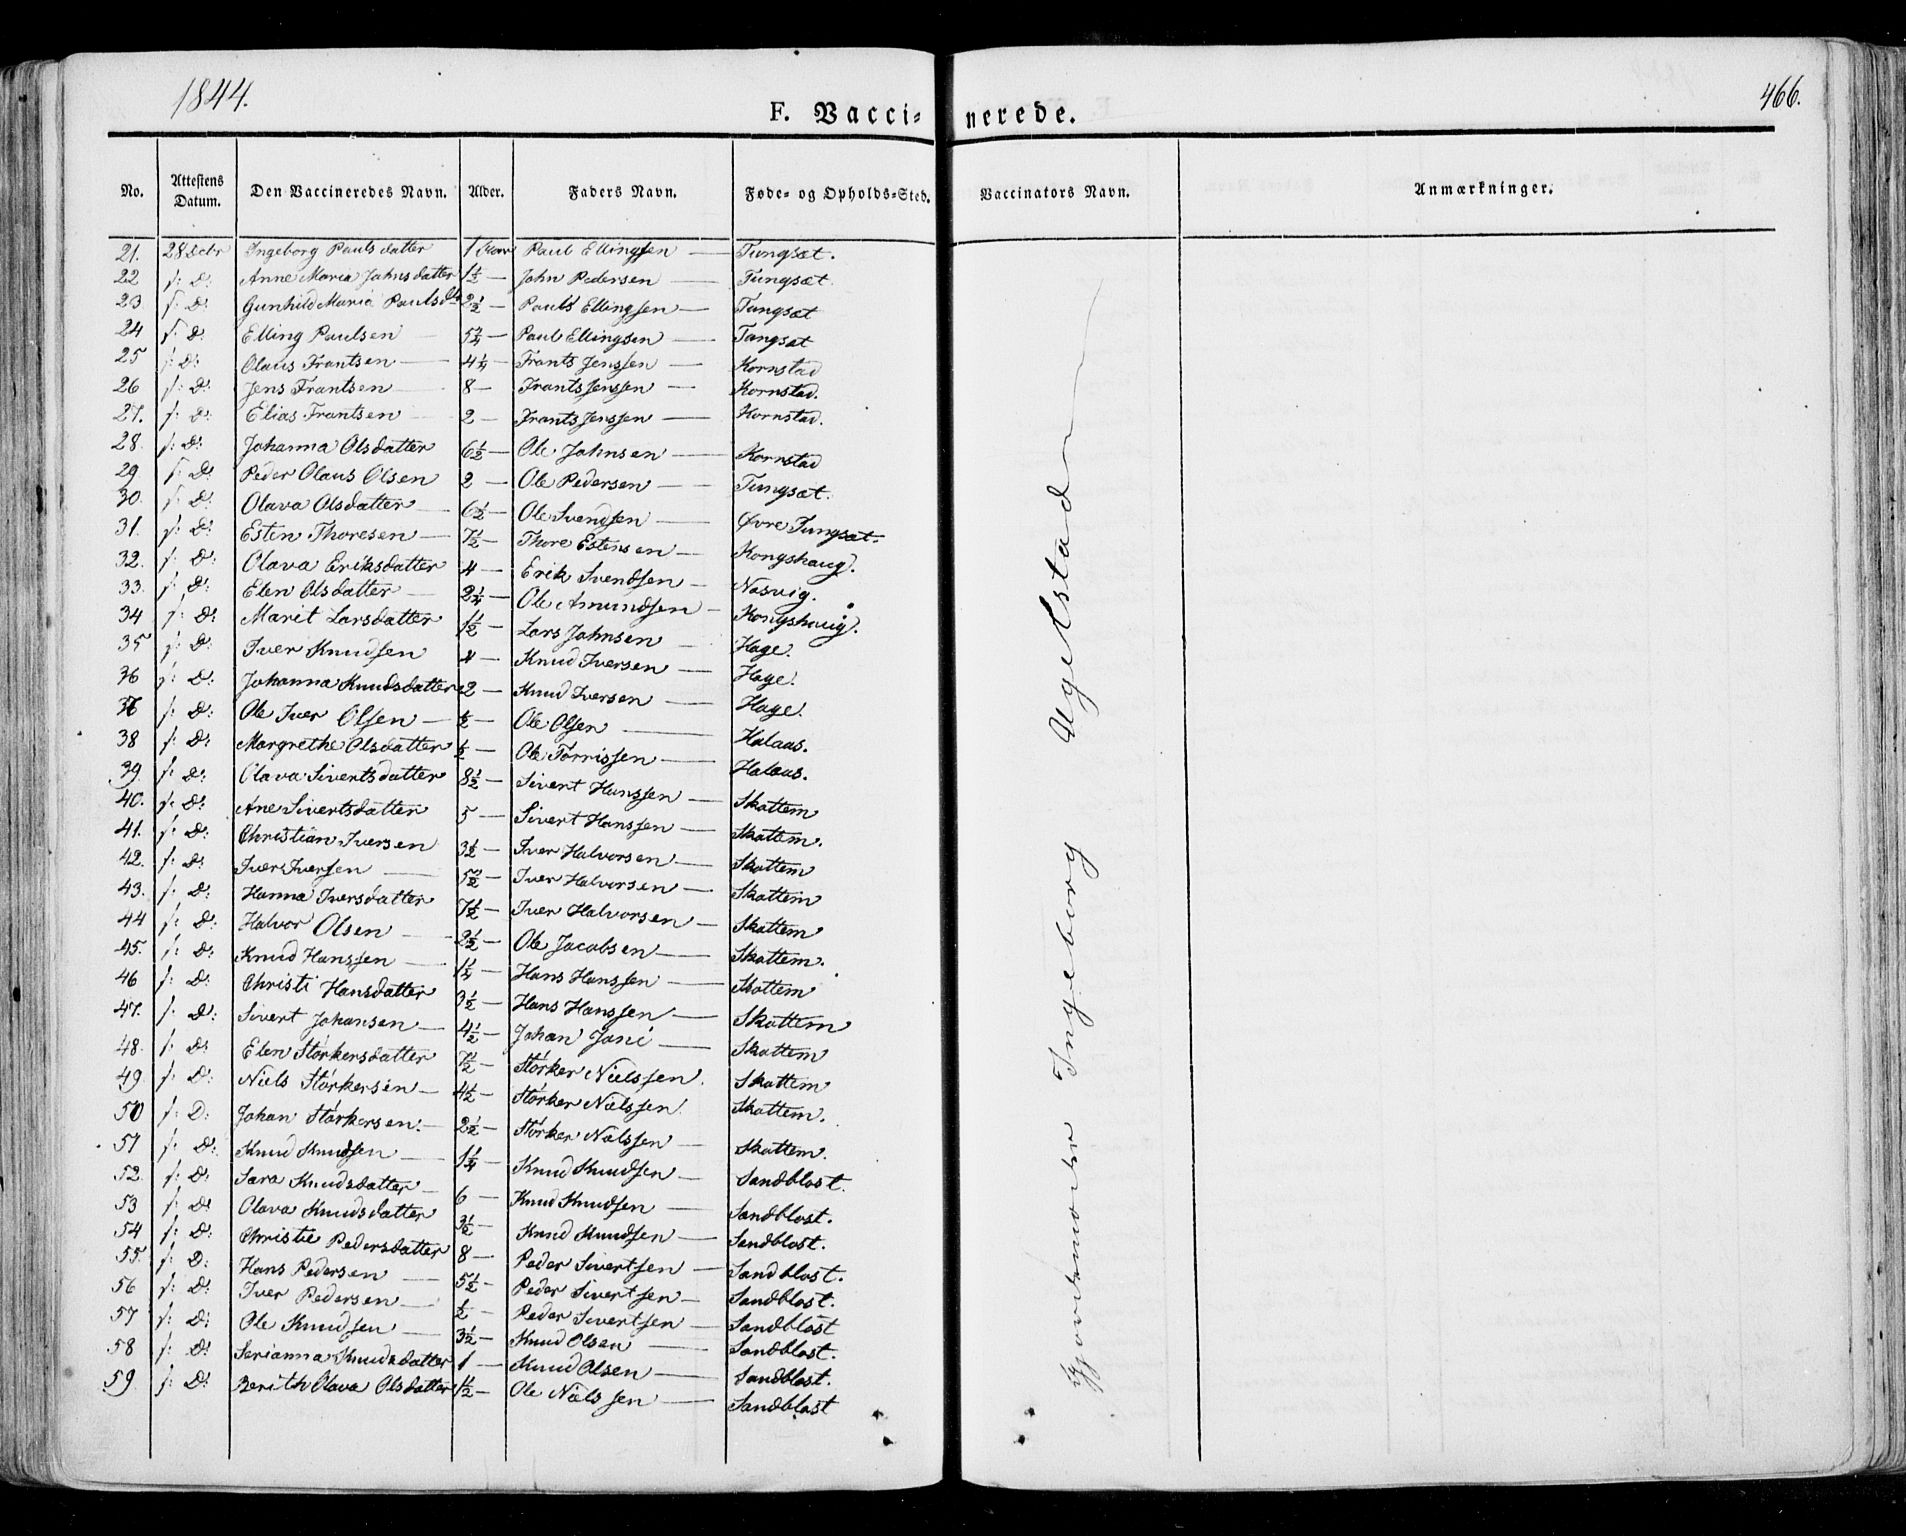 1844.
466.
F. Vaccinerede.
No. Attestens Datum. Den Vaccineredes Navn. Alder. Faders Navn. Føde- og Opholds-Sted. Vaccinators Navn. Anmærkninger.
21. 28 Decbr Ingeborg Paulsdatter 1 Paul Ellingsen — Tungsæt.
22 s: D: Anne Maria Johnsdatter 1½ — John Pedersen — Tungsæt.
23 s: D: Gunhild Maria Paulsdtr 2½ — Pauls Ellingsen — Tungsæt
24 s: D: Elling Paulsen 5¾ — Paul Ellingsen — Tungsæt
25 s: D: Olaus Frantsen — 4¼ — Frants Jenssen — Kornstad
26 s: D: Jens Frantsen 8 — Frants Jenssen — Kornstad.
27. s: D: Elias Frantsen 2 — Frants Jenssen — Kornstad.
28. s: D: Johanna Olsdatter 6½ — Ole Johnsen — Kornstad
29 s: D: Peder Olaus Olsen 2 — Ole Pedersen — Tungsæt.
30. s: D: Olava Olsdatter — 6½ — Ole Svendsen — Øvre Tungsæt.
31. s: D: Esten Thoresen — 7½ — Thore Estensen — Kongshaug.
32. s: D: Olava Eriksdatter 4 — Erik Svendsen — Nasvig.
33. s: D: Elen Olsdatter — 2¼ — Ole Amundsen — Kongshaug.
34 s: D: Marit Larsdatter 1½ — Lars Johnsen — Hage.
35 s: D: Iver Knudsen 4 — Knud Iversen — Hage.
36 s: D: Johanna Knudsdatter 2 — Knud Iversen — Hage.
37 s: D: Ole Iver Olsen — ½ — Ole Olsen — Halaas.
38 s: D: Margrethe Olsdatter ½ — Ole Torrissen — Halaas.
39. s: D: Olava Sivertsdatter 8½ — Sivert Hanssen — Skattem
40. s: D: Ane Sivertsdatter 5 — Sivert Hanssen — Skattem.
41. s: D: Christian Iversen 3½ — Iver Halvorsen — Skattem
42. s: D: Iver Iversen — 5½ — Iver Halvorsen — Skattem
43. s: D: Hanna Iversdatter 7½ — Iver Halvorsen — Skattem
44 s: D: Halvor Olsen — 2½ — Ole Jacobsen — Skattem.
45. s: D: Knud Hanssen — 1¼ — Hans Hanssen — Skattem
46 s: D: Christi Hansdatter 3½ — Hans Hanssen — Skattem
47. s: D: Sivert Johansen — 4½ — Johan Jani — Skattem
48. s: D: Elen Störkersdatter 7½ — Störker Nielssen. Skattem
49 s: D: Niels Störkersen — 4½ — Störker Nielssen Skattem.
50 s: D: Johan Störkersen. — 2½ — Störker Nielssen — Skattem.
51 s: D: Knud Knudsen — 1¼ — Knud Knudsen — Sandblost.
52. s: D: Sara Knudsdatter — 6 — Knud Knudsen — Sandblost.
53 s: D: Olava Knudsdatter 3½ — Knud Knudsen — Sandblost.
54 s: D: Christie Pedersdatter 8 — Peder Sivertsen — Sandblost.
55. s: D: Hans Pedersen — 5½ — Peder Sivertsen — Sandblost.
56 s: D: Iver Pedersen — ½ — Peder Sivertsen — Sandblost
57 s: D: Ole Knudsen — 3½ — Knud Olsen — Sandblost.
58 s: D: Serianna Knudsdatter 1 — Knud Olsen — Sandblost.
59 s: D: Berith Olava Olsdatter 1½ — Ole Nielssen — Sandblost
Gjordemoder Ingeborg Ugelstad